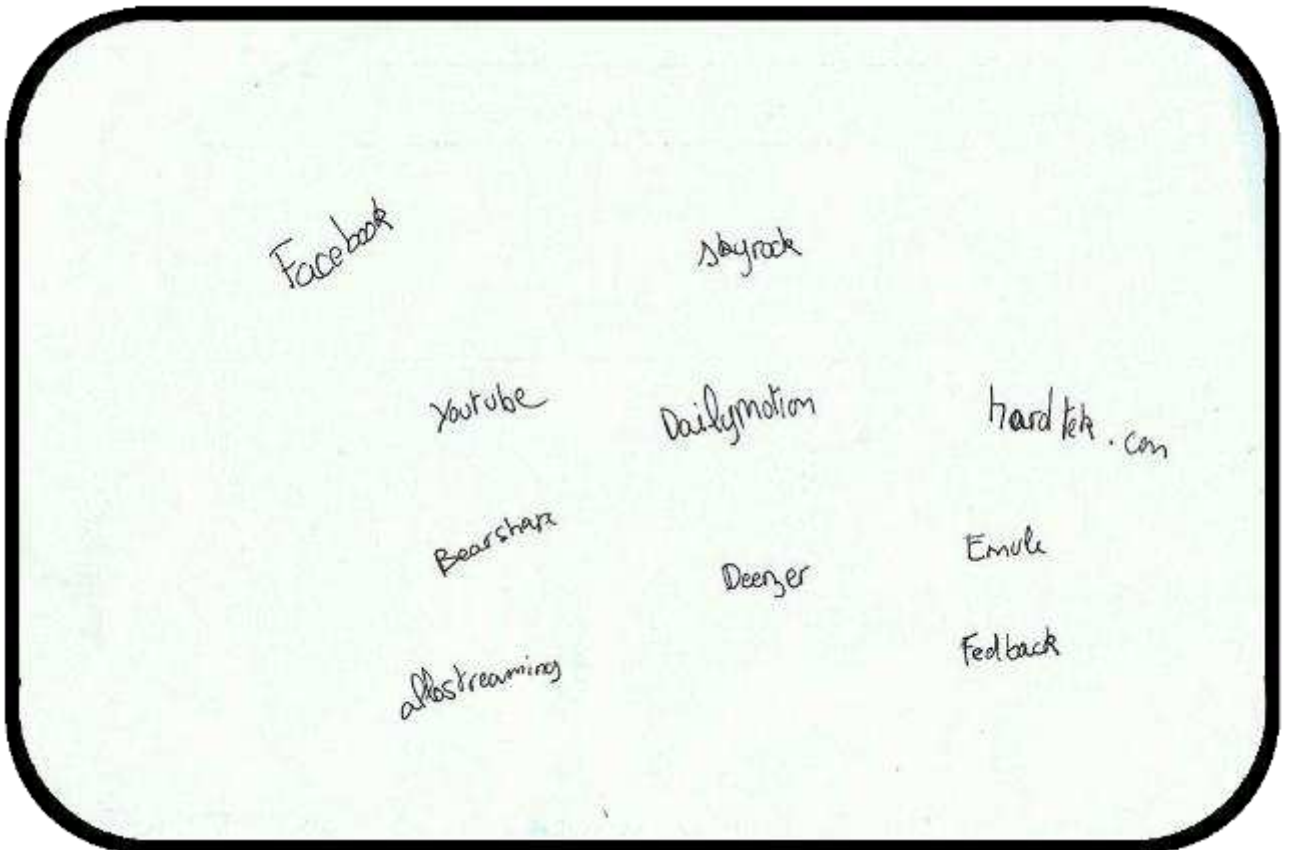 Facebook
skyrock
Youtube
Dailymotion
hardtek.com
Bearshare
Deezer
Emule
allostreaming
Fedback